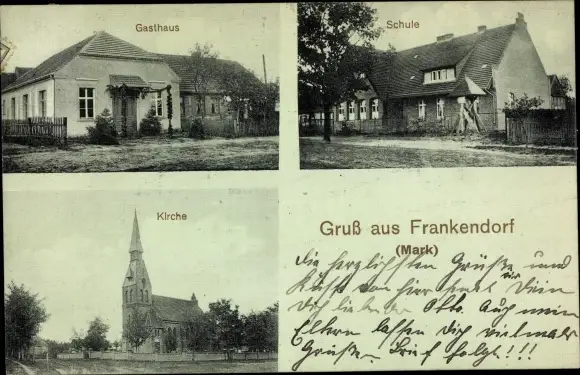 Gasthaus
Schule
Kirche
Gruß aus Frankendorf
(Mark)
Die herzlichsten Grüße und
Küsse von hier sendet für Dein
Dich liebender Otto. Auch meine
Eltern lassen Dich vielmals
Grüßen. Brief folgt!!!